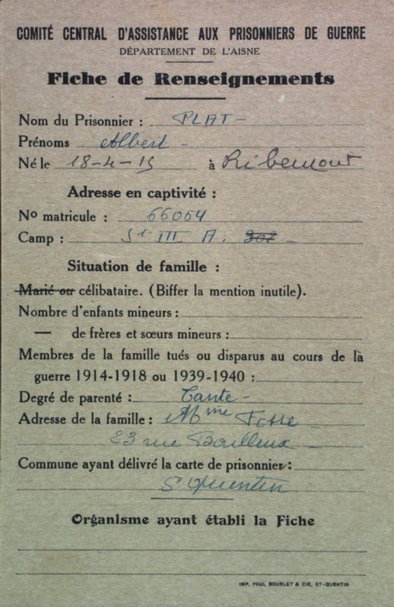 COMITÉ CENTRAL D'ASSISTANCE AUX PRISONNIERS DE GUERRE
DÉPARTEMENT DE L'AISNE
Fiche de Renseignements
Nom du Prisonnier : PLAT -
Prénoms Albert -
Né le 18-4-15 à Ribemont
Adresse en captivité :
No matricule : 66054
Camp : St III A.
Situation de famille :
Marié ou célibataire. (Biffer la mention inutile).
Nombre d'enfants mineurs :
— de frères et sœurs mineurs :
Membres de la famille tués ou disparus au cours de la
guerre 1914-1918 ou 1939-1940 :
Degré de parenté : Tante -
Adresse de la famille : Mme
23 rue
Commune ayant délivré la carte de prisonnier :
St Quentin
Organisme ayant établi la Fiche
IMP. PAUL BOURLET & CIE, ST-QUENTIN